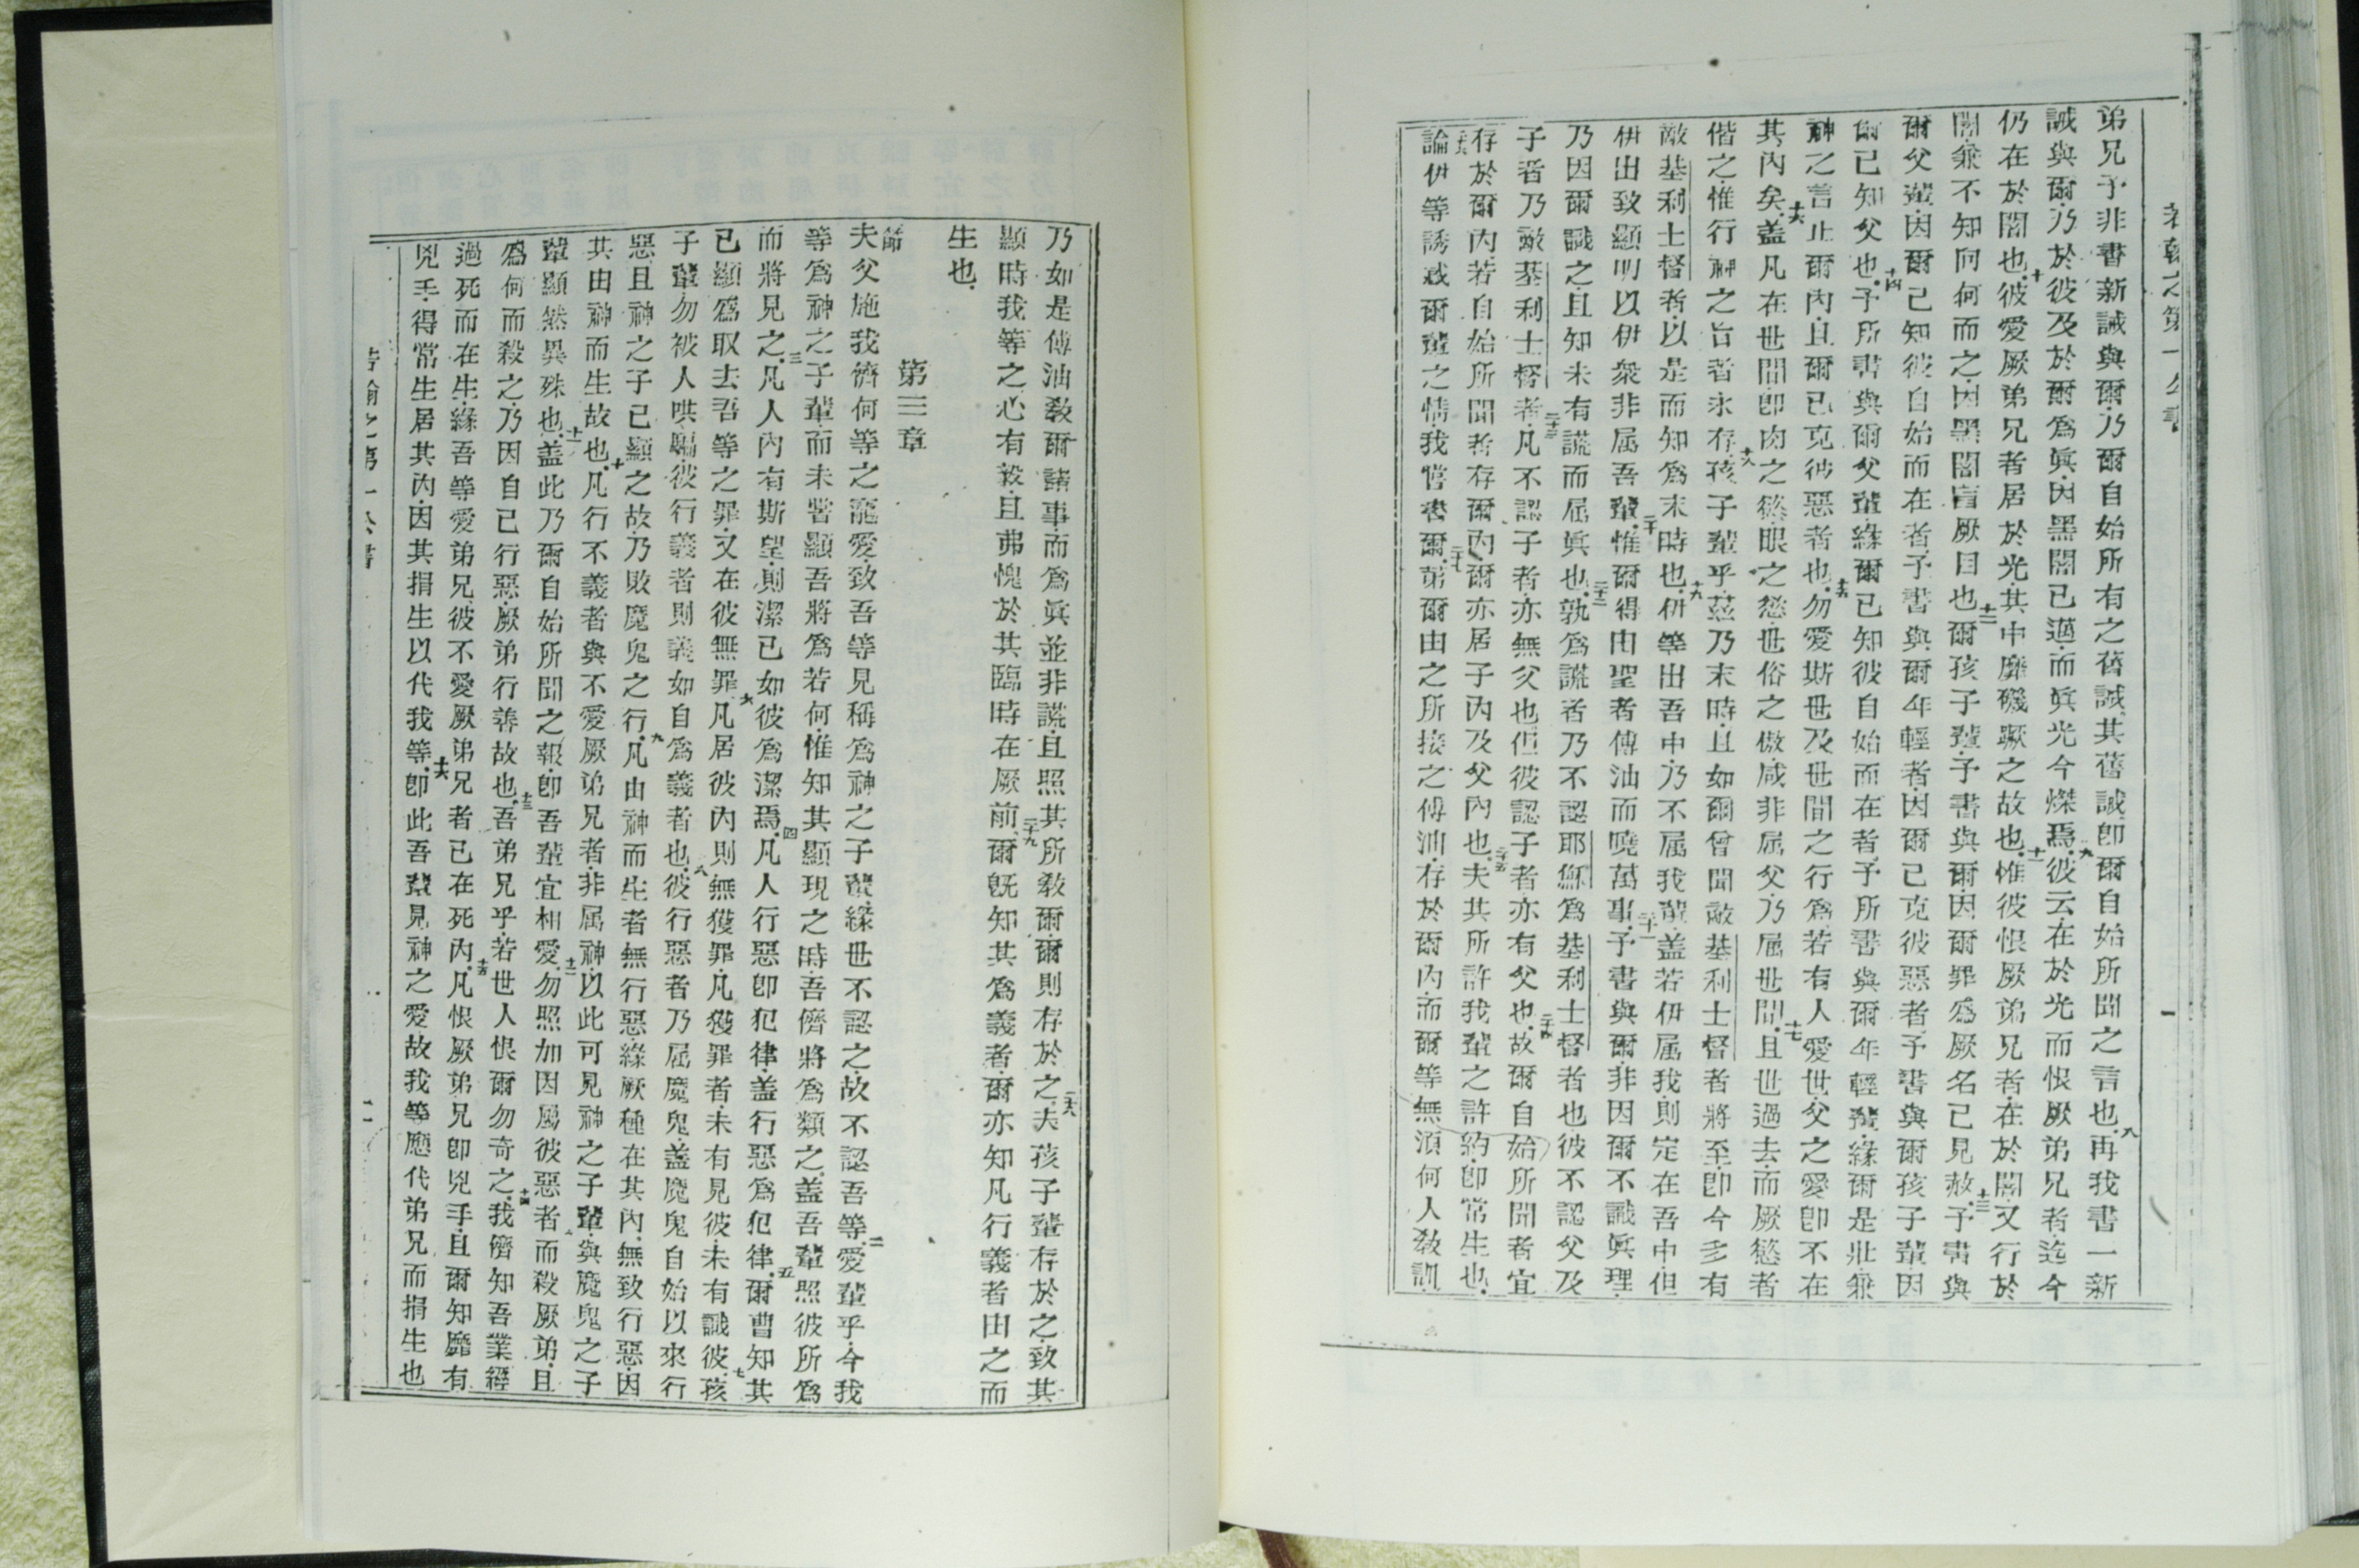 若翰之第一公書
弟兄予非書新誡與爾乃爾自始所有之舊誡其舊誡卽爾自始所聞之言也八再我書一新
誡與爾乃於彼及於爾爲眞因黑闇已過而眞光今燦焉九彼云在於光而恨厥弟兄者迄今
仍在於闇也十彼愛厥弟兄者居於光其中靡磯蹶之故也十一惟彼恨厥弟兄者在於闇又行於
闇兼不知向何而之因黑闇盲厥目也十二爾孩子輩予書與爾因爾罪爲厥名已見赦十三予書與
爾父輩因爾已知彼自始而在者予書與爾年輕者因爾已克彼惡者予書與爾孩子輩因
爾已知父也十四予所書與爾父輩緣爾已知彼自始而在者予所書與爾年輕輩緣爾是壯兼
神之言止爾內且爾已克彼惡者也十五勿愛斯世及世間之行爲若有人愛世父之愛卽不在
其內矣十六蓋凡在世間卽肉之慾眼之慾世俗之傲咸非屈父乃屈世間十七且世過去而厥慾者
偕之惟行神之旨者永存十八孩子輩乎茲乃末時且如爾曾聞敵基利士督者將至卽今多有
敵基利士督者以是而知爲末時也十九伊等出吾中乃不屈我輩蓋若伊屈我則定在吾中但
伊出致顯明以伊衆非屈吾輩二十惟爾得由聖者傅油而曉萬事二十一予書與爾非因爾不識眞理
乃因爾識之且知未有謊而屈眞也二十二孰爲謊者乃不認耶穌爲基利士督者也彼不認父及
子者乃敵基利士督者二十三凡不認子者亦無父也但彼認子者亦有父也二十四故爾自始所聞者宜
存於爾內若自始所聞者存爾內爾亦居子內及父內也二十五夫其所許我輩之許約卽常生也
二十六論伊等誘惑爾輩之情我嘗書爾二十七第爾由之所接之傅油存於爾內而爾等無須何人敎訓
乃如是傅油敎爾諸事而爲眞並非謊且照其所敎爾爾則存於之二十八夫孩子輩存於之致其
顯時我等之心有毅且弗愧於其臨時在厥前二十九爾旣知其爲義者爾亦知凡行義者由之而
生也
第三章
節
夫父施我儕何等之寵愛致吾等見稱爲神之子輩緣世不認之故不認吾等二愛輩乎今我
等爲神之子輩而未嘗顯吾將爲若何惟知其顯現之時吾儕將爲類之蓋吾輩照彼所爲
而將見之三凡人內有斯望則潔已如彼爲潔焉四凡人行惡卽犯律蓋行惡爲犯律五爾曹知其
已顯爲取去吾等之罪又在彼無罪六凡居彼內則無獲罪凡獲罪者未有見彼未有識彼七孩
子輩勿被人哄騙彼行義者則義如自爲義者也八彼行惡者乃屈魔鬼蓋魔鬼自始以來行
惡且神之子已顯之故乃敗魔鬼之行九凡由神而生者無行惡緣厥種在其內無致行惡因
其由神而生故也十凡行不義者與不愛厥弟兄者非屬神以此可見神之子輩與魔鬼之子
輩顯然異殊也十一蓋此乃爾自始所聞之報卽吾輩宜相愛十二勿照加因屬彼惡者而殺厥弟且
爲何而殺之乃因自己行惡厥弟行善故也十三吾弟兄乎若世人恨爾勿奇之十四我儕知吾業經
過死而在生緣吾等愛弟兄彼不愛厥弟兄者已在死內十五凡恨厥弟兄卽兇手且爾知靡有
兇手得常生居其內因其捐生以代我等十六卽此吾輩見神之愛故我等應代弟兄而捐生也